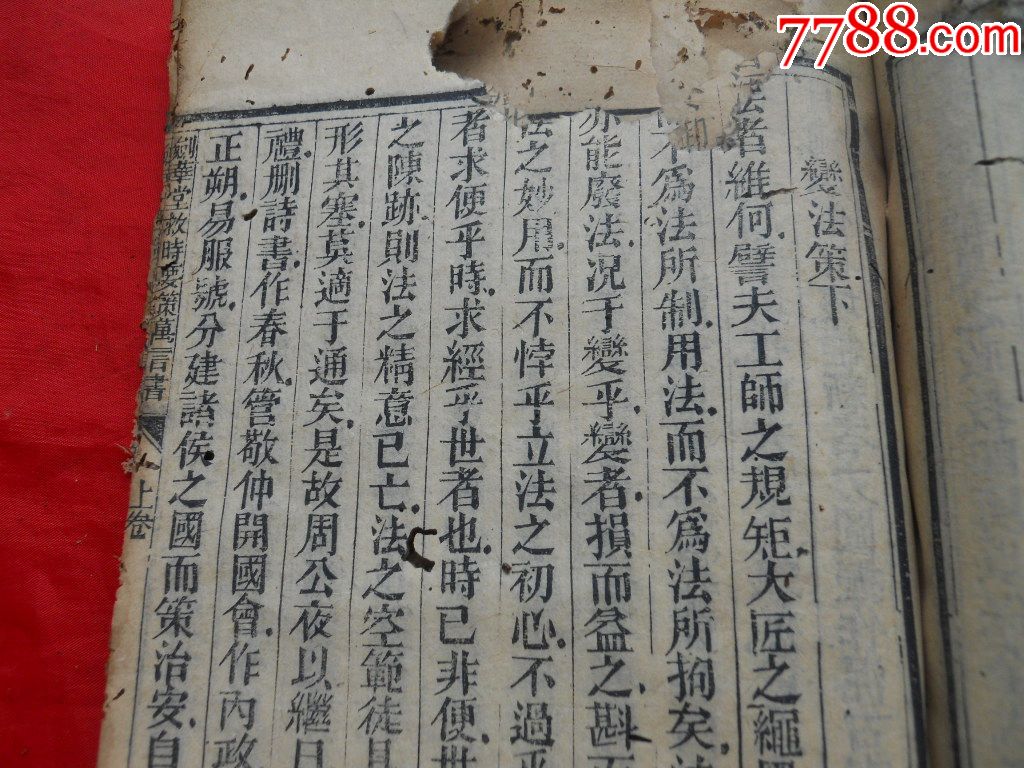 7788.com
變法策下
法者維何譬夫工師之規矩大匠之繩
不爲法所制用法而不爲法所拘矣
亦能廢法况于變乎變者損而益之斟
法之妙用而不悖乎立法之初心不過
者求便乎時求經乎世者也時已非便世
之陳跡則法之精意已亡法之空範徒具
形其塞莫適于通矣是故周公夜以繼日
禮刪詩書作春秋管敬仲開國會作內政
正朔易服號分建諸侯之國而策治安自
華堂救時變策萬言書
上卷